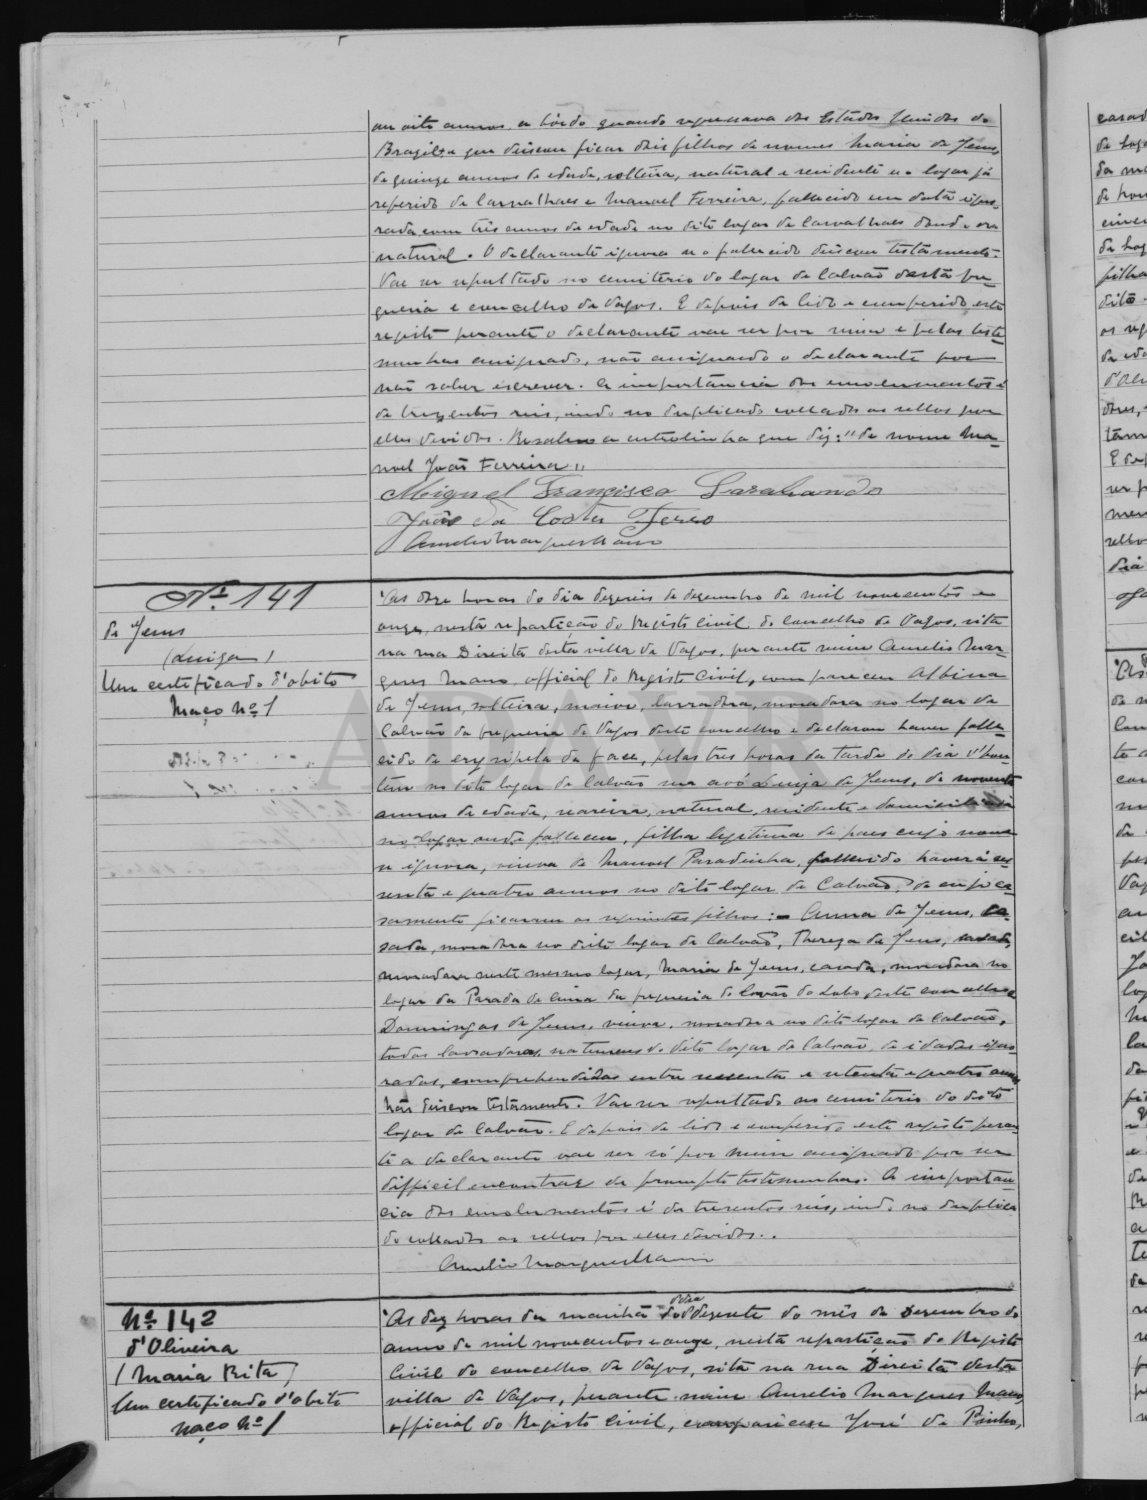 an oito annos, a bórdo quando regressava dos Estados Unidos do
Brazil e que deixou ficar dois filhos de nomes Maria de Jesus,
de quinze annos de edade, solteira, natural e residente no logar já
referido de Carvalhaes e Manuel Ferreira, fallecido em data igno-
rada, com três annos de edade no dito logar de Carvalhaes donde era
natural. O declarante ignora se o fallecido deixou testamento.
Vae ser sepultado no cemiterio do logar de Calvão desta fre-
guezia e concelho de Vagos. E depois de lido e conferido este
registo perante o declarante vae ser por mim e pelas teste-
munhas assignado, não assignando o declarante por
não saber escrever. A importancia dos emolumentos é
de trezentos reis, indo no duplicado collados os sellos por
elles devidos. Resalvo a entrelinha que diz: "de nome Ma-
noel João Ferreira"
Miguel Francisco Sarabando
João da Costa
Aurelio Marques Mano
Nº 141
de Jesus
(Luiza)
Um certificado d'obito
Maço nº 1
As onze horas do dia dezeseis de dezembro de mil novecentos e
onze, nesta repartição do Registo Civil do concelho de Vagos, sita
na rua Direita desta villa de Vagos, perante mim Aurelio Mar-
ques Mano, official do Registo Civil, compareceu Albina
de Jesus, solteira, maior, lavradora, moradora no logar de
Calvão da freguezia de Vagos deste concelho e declarou haver falle-
cido de erysipela da face, pelas tres horas da tarde do dia d'hon-
tem no dito logar de Calvão sua avó Luiza de Jesus, de noventa
annos de edade, natural, residente e domiciliada
no logar onde falleceu, filha legitima de paes cujo nome
se ignora, viuva de Manuel Paradinha, fallecido haverá ses-
senta e quatro annos no dito logar de Calvão, de cujo ca-
samento ficaram os seguintes filhos: - Anna de Jesus, ca-
sada, moradora no dito logar de Calvão, Thereza de Jesus, casada,
moradora neste mesmo logar, Maria de Jesus, casada, moradora no
logar da Parada de Cima da freguezia de Covão do Lobo deste concelho e
Domingas de Jesus, viuva, moradora no dito logar de Calvão,
todas lavradoras, naturaes do dito logar de Calvão, de idades igno-
radas, comprehendidas entre sessenta e setenta e quatro annos.
Não deixou testamento. Vae ser sepultado no cemiterio do dito
logar de Calvão. E depois de lido e conferido este registo peran-
te a declarante vae ser só por mim assignado por ser
difficil encontrar de prompto testemunhas. A importan-
cia dos emolumentos é de trezentos reis, indo no duplica-
do collados os sellos por elles devidos.
Aurelio Marques Mano
Nº 142
d'Oliveira
(Maria Rita)
Um certificado d'obito
maço nº 1
dia
As dez horas da manhã do dezesete do mês de Dezembro do
anno de mil novecentos e onze, nesta repartição do Registo
Civil do concelho de Vagos, sita na rua Direita desta
villa de Vagos, perante mim Aurelio Marques Mano,
official do Registo Civil, compareceu José de Pinho,